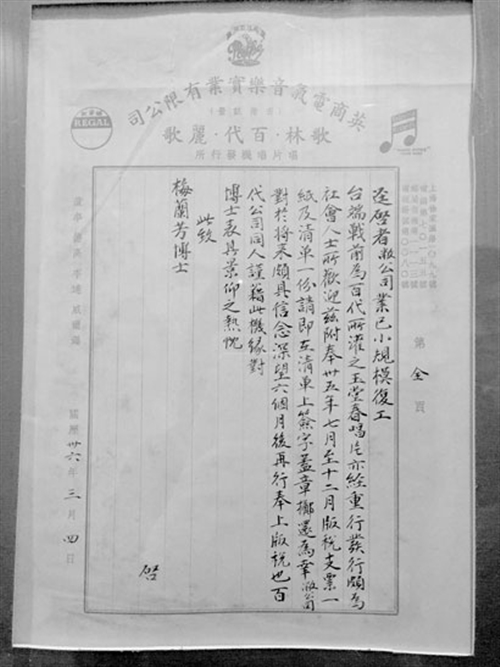 英商電氣音樂實業有限公司
歌林·百代·麗歌
唱片唱機發行所
REGAL
第全頁
逕啓者敝公司業已小規模復工
台端戰前爲百代所灌之玉堂春唱片亦經重行發行頗爲
社會人士所歡迎茲附奉卅五年七月至十二月版稅支票一
紙及清單一份請即在清單上簽字蓋章擲還爲幸敝公司
對於將來頗具信念深望六個月後再行奉上版稅也百
代公司同人謹藉此機緣對
博士表其景仰之熱忱
此致
梅蘭芳博士
啓
國歷卅六年三月四日